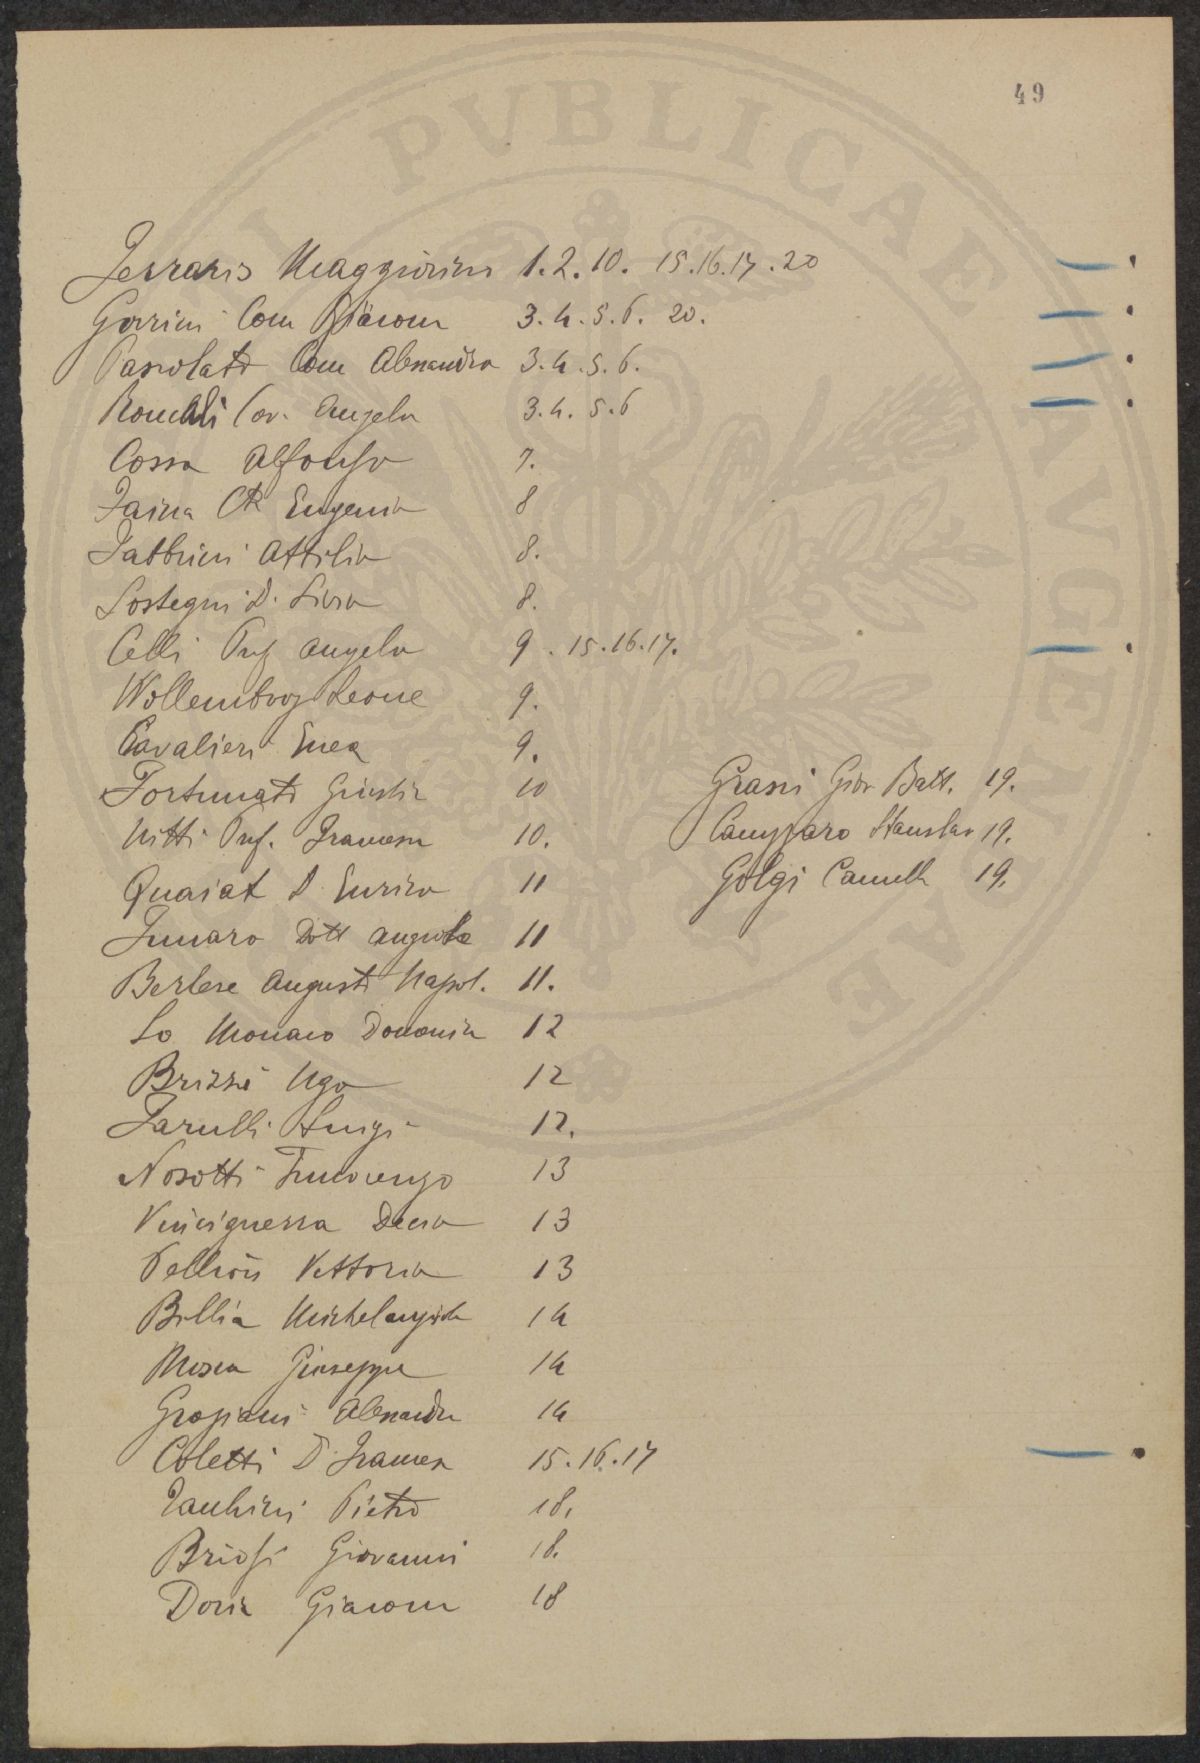 49
Ferraris Maggiorino 1.2.10. 15.16.17.20
Gorrini Com Giacomo 3.4.5.6. 20.
Pasolato Com Alessandro 3.4.5.6.
Cav. Angelo 3.4.5.6
Cossa Alfonso 7.
Faina Cte Eugenio 8
Fabbrini Attilio 8.
Sostegni D. Livio 8.
Celli Prof Angelo 9. 15.16.17.
Wollemborg Leone 9.
Cavalieri Enea 9.
Fortunato Giustin 10
Nitti Prof. Francesco 10.
Quaiat D. Enrico 11
Dott Augusto 11
Berlese Augusto Napol. 11.
Lo Monaco Domenico 12
Brizzi Ugo 12
Farulli Luigi 12.
Nosotti Innocenzo 13
Vinciguerra Decio 13
Pellion Vittorio 13
Billia Michelangelo 14
Mosca Giuseppe 14
Groppali Alessandro 14
Coletti D Francesco 15.16.17
Zanchini Pietro 18.
Briosi Giovanni 18.
Doria Giacomo 18
Grassi Giov Batt. 19.
Cannizzaro Stanislao 19.
Golgi Camillo 19.
I PVBLICAE AVGENDAE